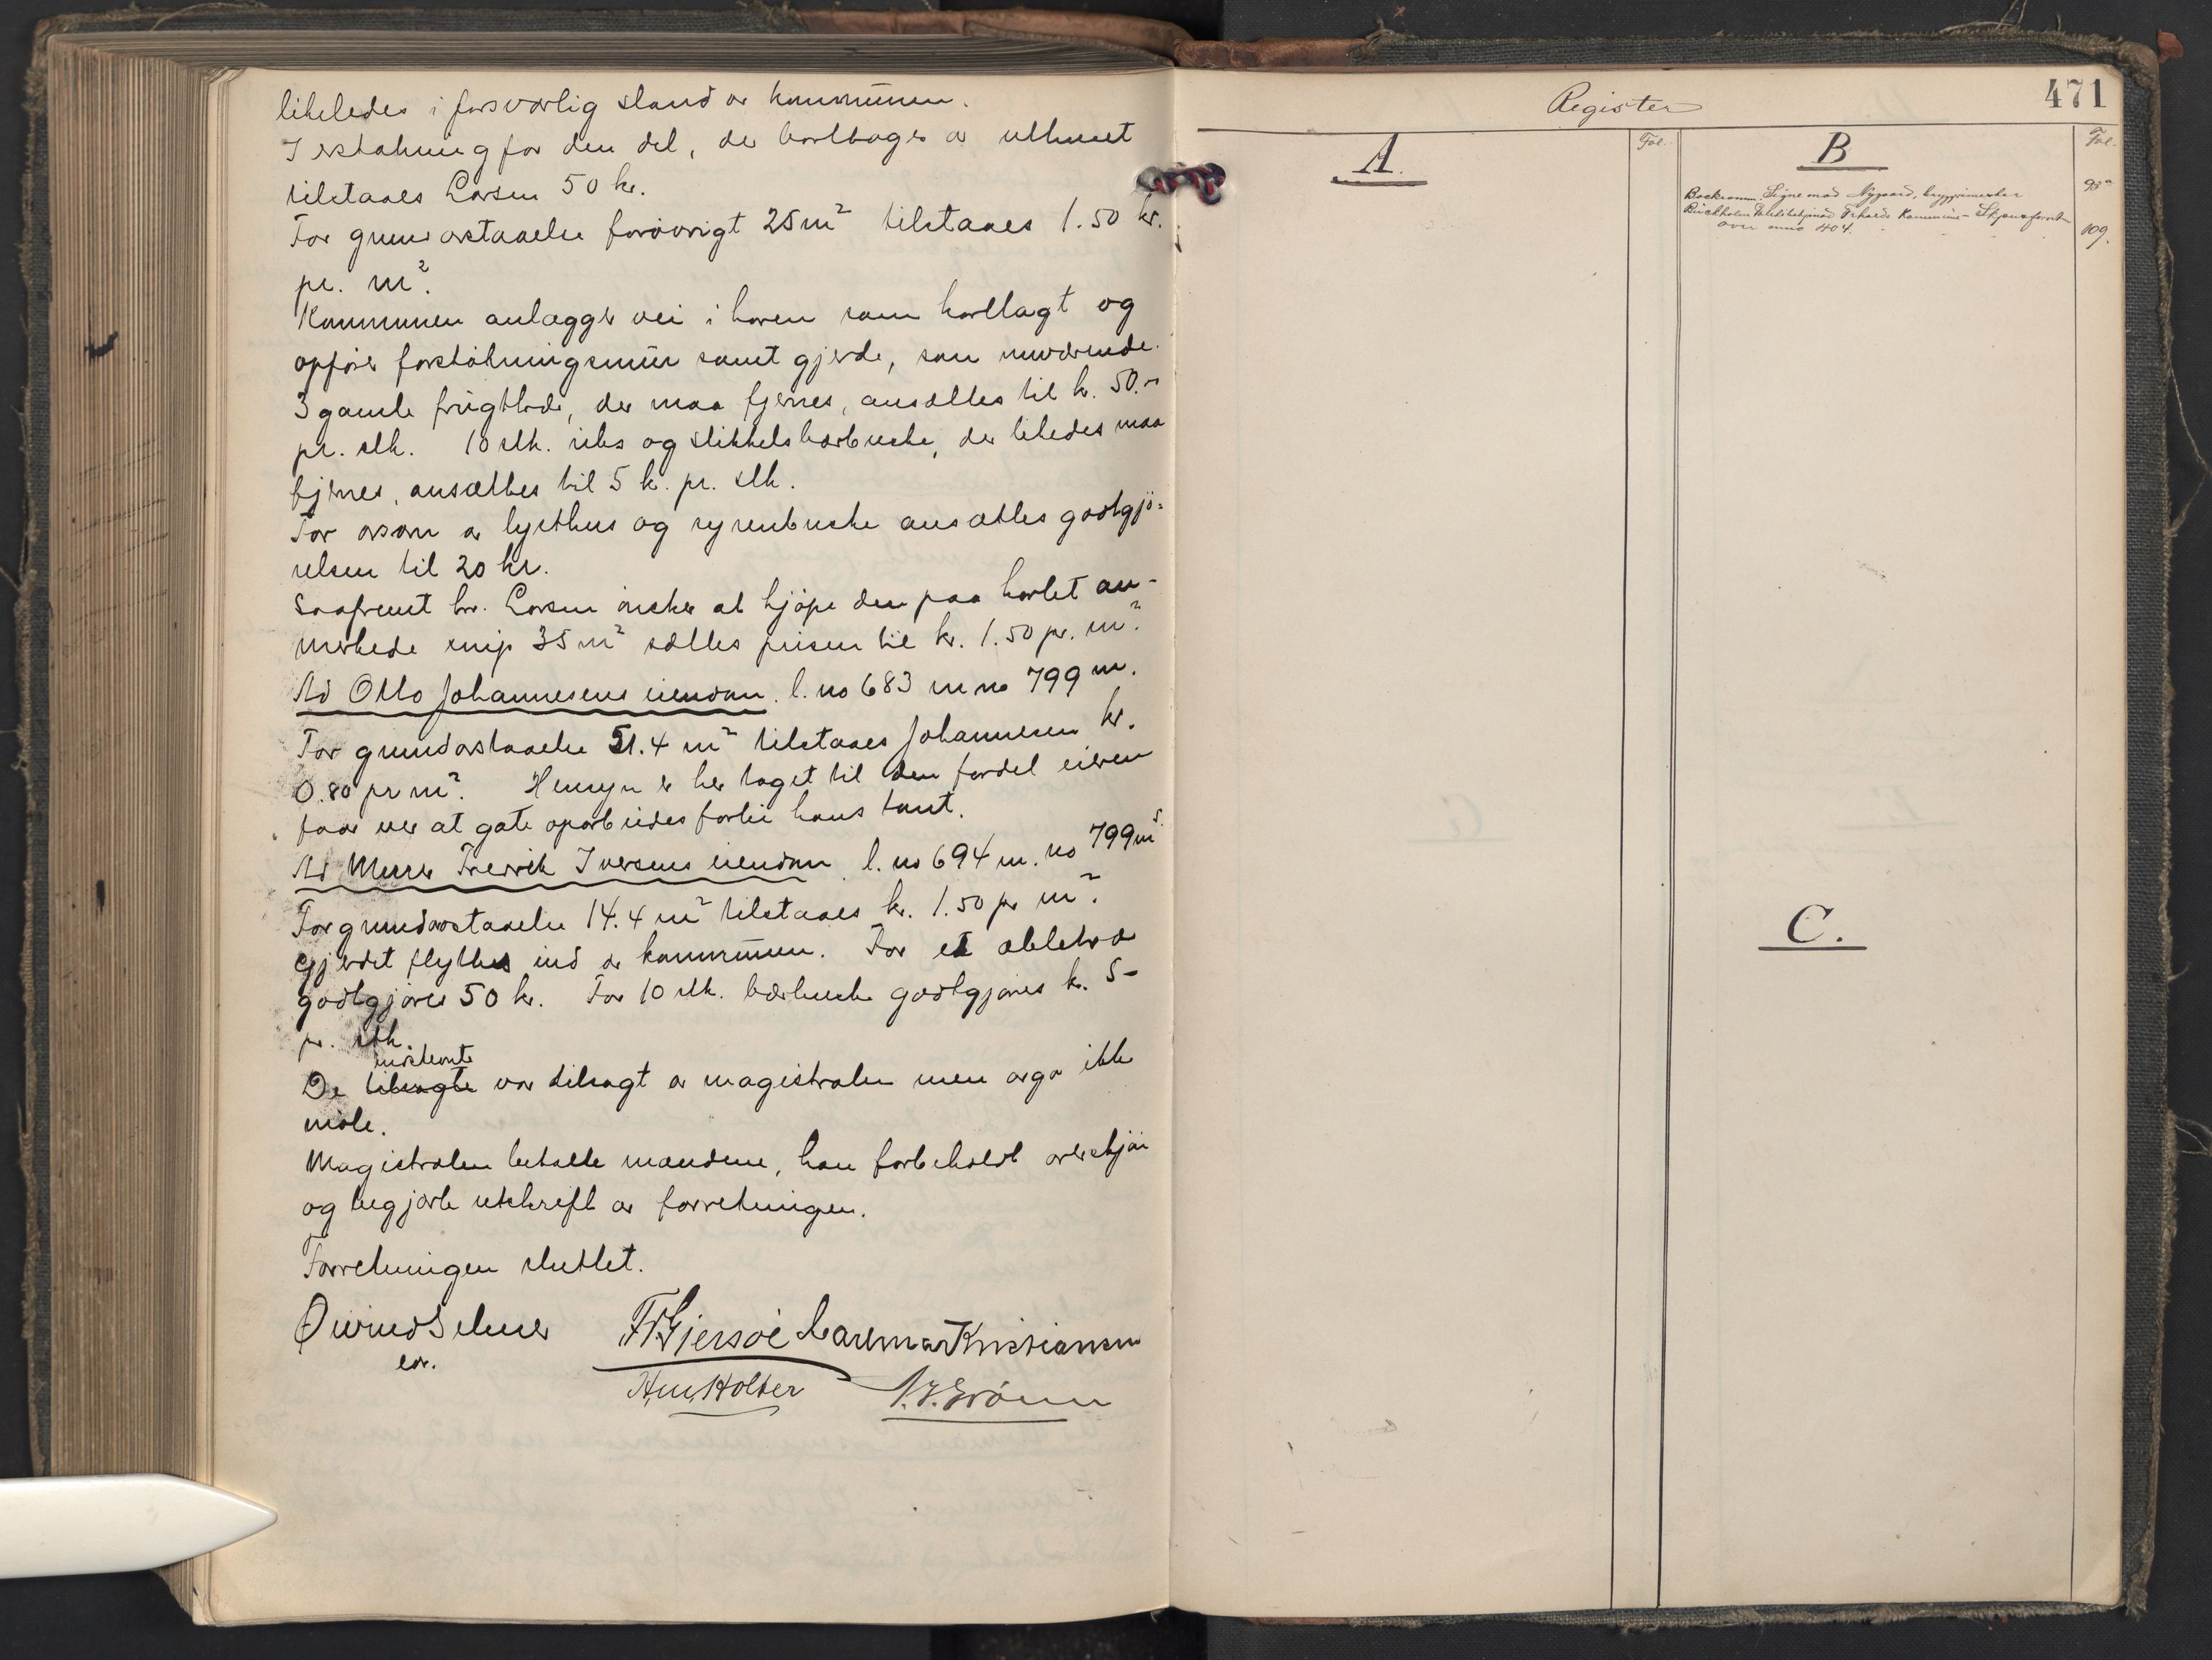 likeledes i forsvarlig stand av kommunen.
I erstatning for den del, der borttages av uthuset
tilstaaes Larsen 50 kr.
For grundavstaaelse forøvrigt 25 m² tilstaaes 1.50 kr.
pr. m².
Kommunen anlægger vei i haven som kartlagt og
opfører forstøtningsmur samt gjerde, som nuværende.
3 gamle frugttrær, der maa fjernes, ansættes til kr. 50.-
pr. stk. 10 stk. ribs og stikkelsbærbuske, der likeledes maa
fjernes, ansættes til 5 kr. pr. stk.
For savn av lysthus og syrenbuske ansættes godtgjø-
relsen til 20 kr.
Saafremt hr. Larsen ønsker at kjøpe den paa kartet an-
merkede snip 35 m² sættes prisen til kr. 1.50 pr. m².
Ad Otto Johannesens eiendom. l. no 683 m no 799 m.
For grundavstaaelse 51.4 m² tilstaaes Johannesen kr.
0.80 pr m². Hensyn er her taget til den fordel eieren
faar ver at gate oparbeides forbi hans tomt.
Ad Murer Fredrik Iversens eiendom l. no 694 m. no 799 m⁵.
For grundavstaaelse 14.4 m² tilstaaes kr. 1.50 pr m².
Gjerdet flyttes ind av kommunen. For et æbletræ
godtgjøres 50 kr. For 10 stk. bærbuske godtgjøres kr. 5-
pr. stk.
innstevnte
De tilsagte var tilsagt av magistraten men avga ikke
møte.
Magistraten betalte mændene, han forbeholdt overskjøn
og begjærte utskrift av forretningen.
Forretningen sluttet.
Øivind Selmer FrGjersøe Laremar Kristiansen
cst.
Hm. Holter J. J. Grønn
Register
471
A.
Fol.
B
Fol.
Backramm. Signe mod Nygaard, byggmester 93
Buckholm Mathilde mod Friharde Kommune - Skjønsforretn
over mno 404. 109.
C.